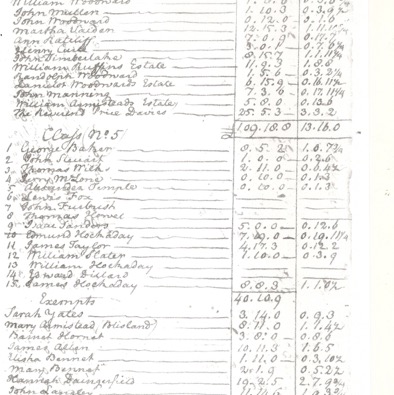 William Woodward
John Meullen 1.10.3 0.3.9
John Woodward 0.12.0 0.1.6
Martha Valden 12.15.3
Ann Ratcliff
Henry Cull
John Timberlake 8.15.7
William Ruffins Estate 11.9.3 1.8.8
Randolph Woodward 1.5.6 0.3.2¼
Lancelot Woodwards Estate 6.15.9 0.16.11¼
John Manning 7.3.6 0.17.11¼
William Armisteads Estate 5.8.0 0.13.6
The Reverend Price Davies 25.5.3 3.3.2
£109.18.8 13.16.0
Class No. 5
1 George Baker 8.5.2 1.0.7¾
2 John Stewart 1.0.0 0.2.6
3 Thomas Wilks 2.11.0 0.6.4½
4 0.10.0 0.1.3
5 Alexander Temple 0.10.0 0.1.3
6 Lewis Fox
7 John Furbush
8 Thomas Howel
9 Isaac Sandors 5.0.0 0.12.6
10 Edmund Hockaday 7.19.0 0.19.11¼
11 James Taylor 4.17.3 0.12.2
12 William Slater 1.10.0 0.3.9
13 William Hockaday
14 Edward Dillard
15 James Hockaday 8.8.3 1.1.0½
40.10.9
Exempts
Sarah Yates 3.14.0 0.9.3
Mary Armistead (Blisland) 8.11.0 1.1.4½
Bainet Hornet 3.8.0 0.8.6
James Allen 10.11.3 1.6.5
Elisha Bennet 1.11.0 0.3.10½
Mary Bennet 2.1.9 0.5.2½
Hannah Daingerfield 19.2.5 2.7.9¾
John Langley 11.14.5 1.9.3½